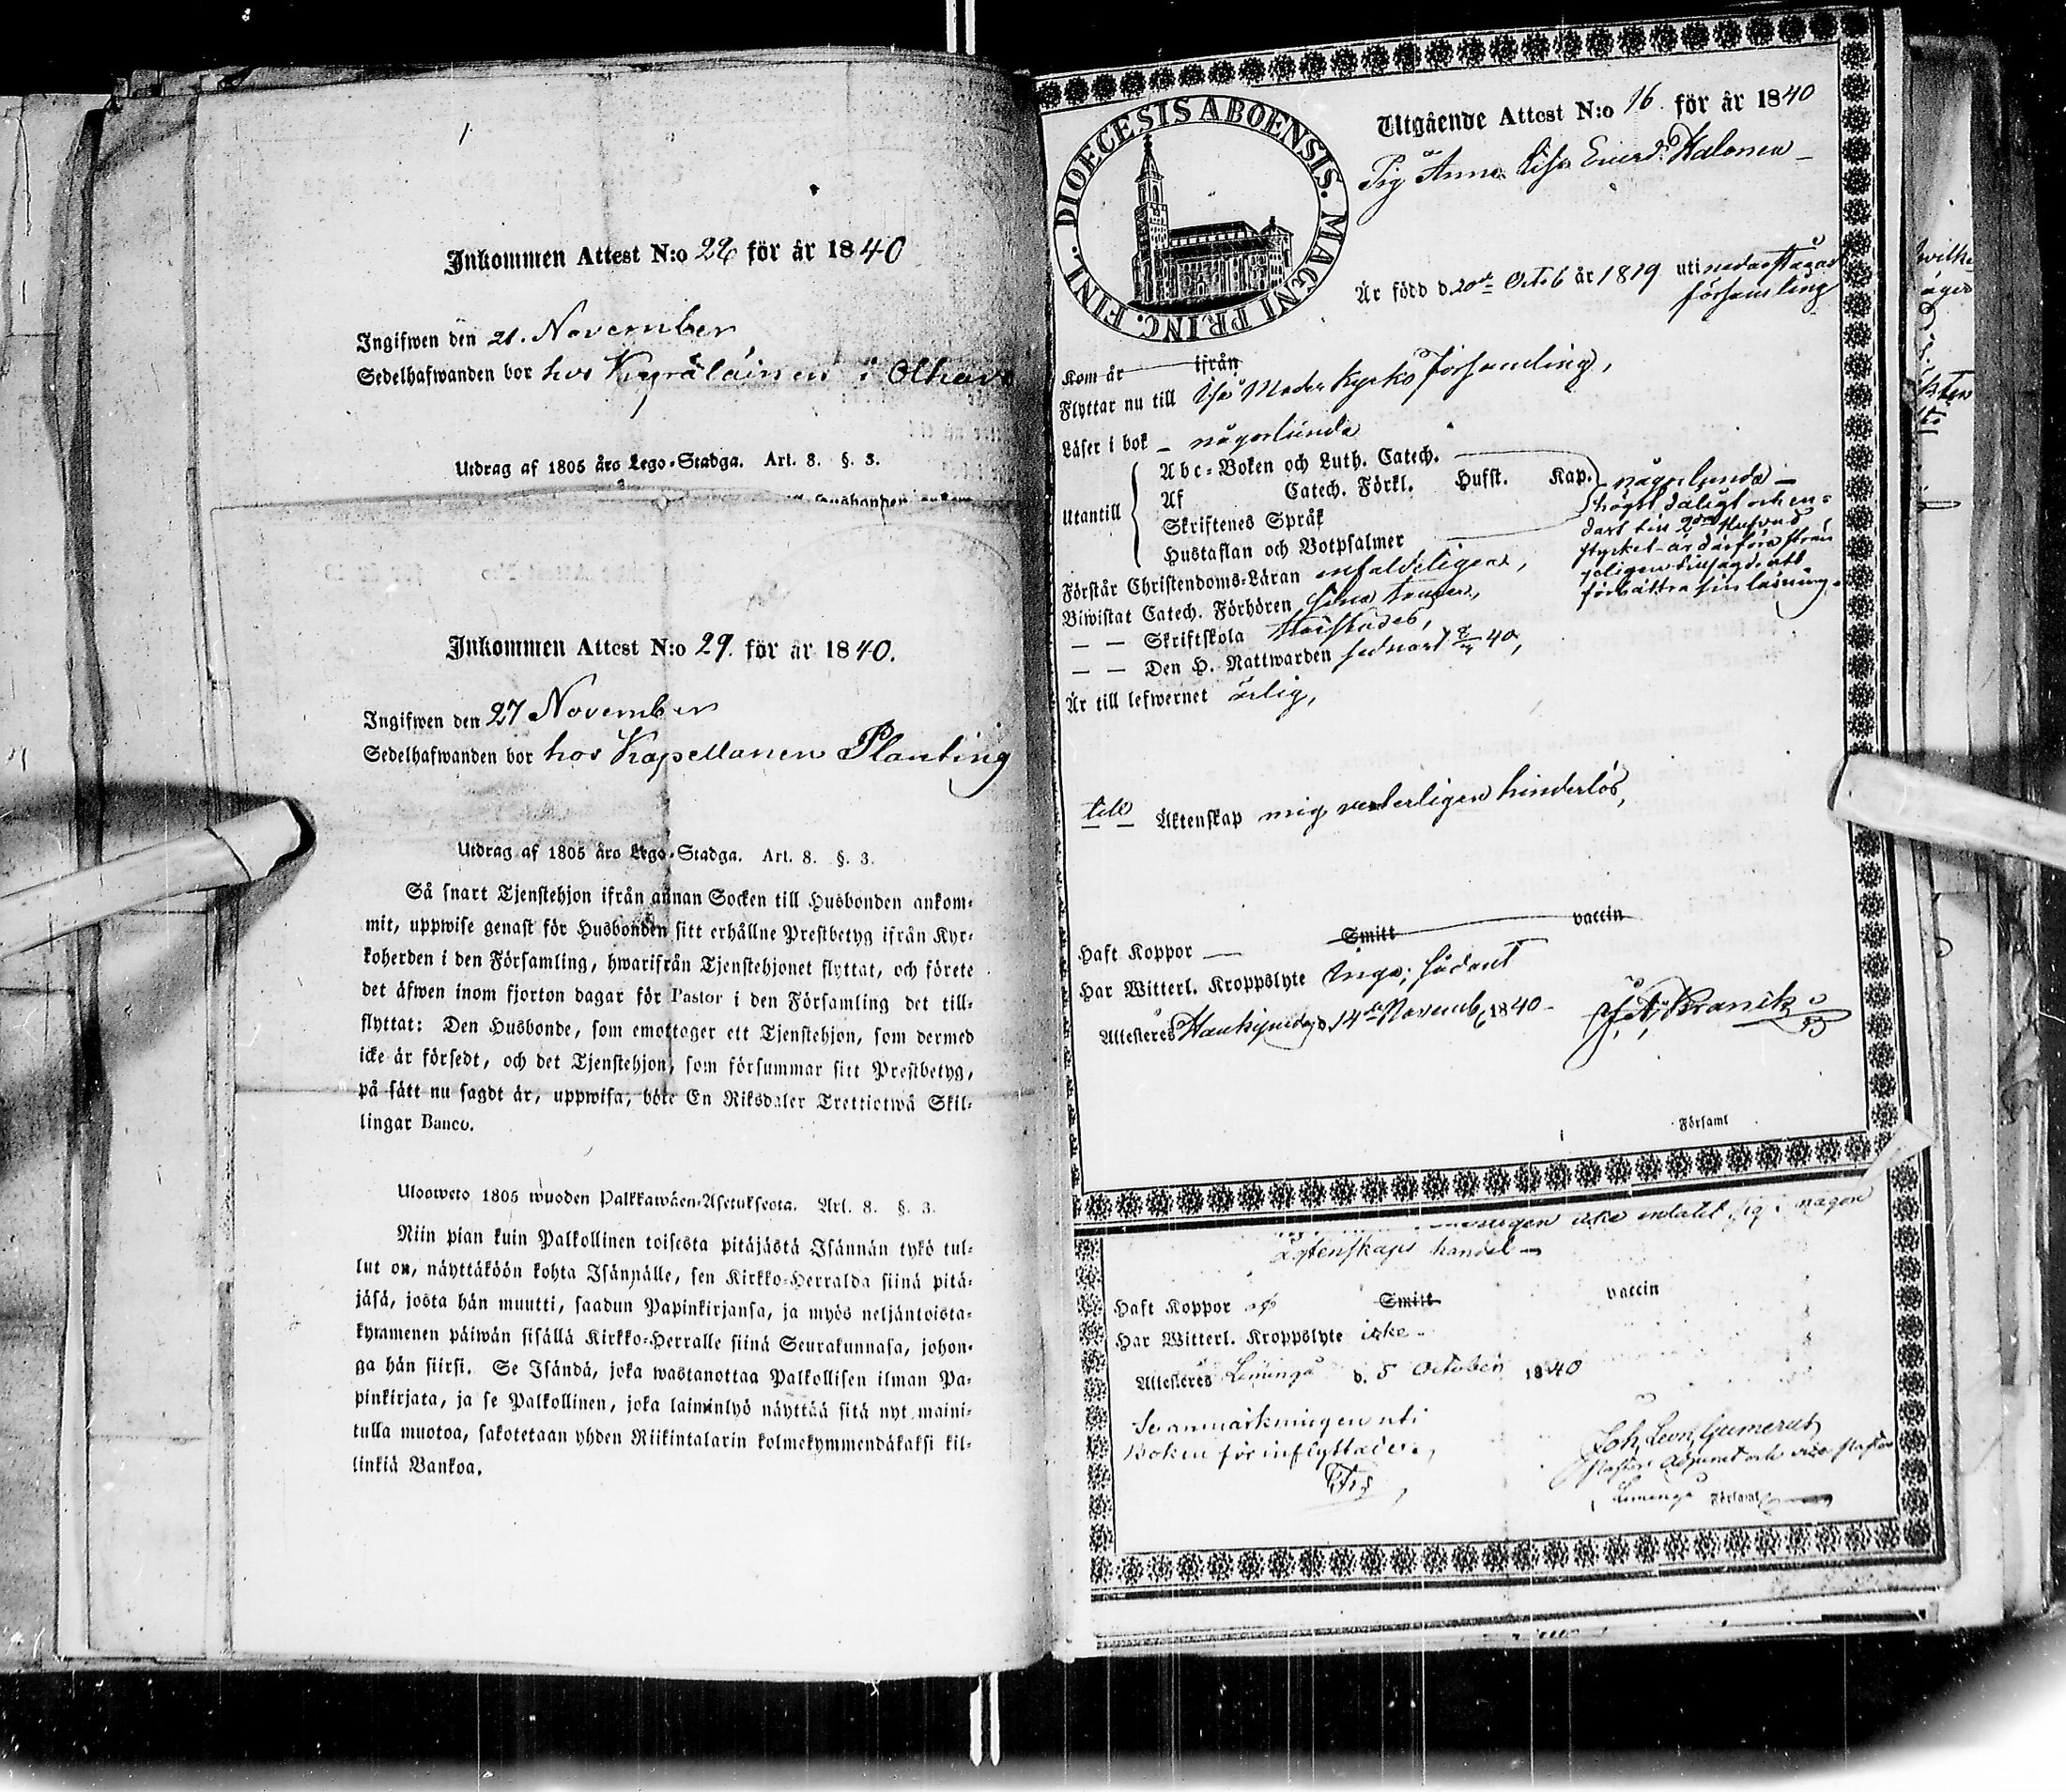 Inkommen Attest N:o 28 för år 1840
Ingifwen den 21. November
Sedelhafwanden bor hos i Olhava
Utdrag af 1805 års Lego-Stadga. Art. 8. §. 3.
Inkommen Attest N:o 29. för år 1840.
Ingifwen den 27 November
Sedelhafwanden bor hos Kapellanen Planting
Utdrag af 1805 års Lego-Stadga. Art. 8. §. 3.
Så snart Tjenstehjon ifrån annan Socken till Husbonden ankom-
mit, uppwise genast för Husbonden sitt erhållne Prestbetyg ifrån Kyr-
koherden i den Församling, hwarifrån Tjenstehjonet flyttat, och förete
det äfwen inom fjorton dagar för Pastor i den Församling det till-
flyttat: Den Husbonde, som emottager ett Tjenstehjon, som dermed
icke är försedt, och det Tjenstehjon, som försummar sitt Prestbetyg,
på sätt nu sagdt är, uppwisa, böte En Riksdaler Trettiotwå Skil-
lingar Banco.
Ulosweto 1805 wuoden Palkkawäen-Asetuksesta. Art. 8. §. 3.
Niin pian kuin Palkollinen toisesta pitäjästä Isännän tykö tul-
lut on, näyttäköön kohta Isännälle, sen Kirkko-Herralda siinä pitä-
jäsä, josta hän muutti, saadun Papinkirjansa, ja myös neljäntoista-
kymmenen päiwän sisällä Kirkko-Herralle siinä Seurakunnasa, johon-
ga hän siirsi. Se Isändä, joka wastanottaa Palkollisen ilman Pa-
pinkirjata, ja se Palkollinen, joka laiminlyö näyttää sitä nyt maini-
tulla muotoa, sakotetaan yhden Riikintalarin kolmekymmendäkaksi kil-
linkiä Bankoa.
DIOECESIS ABOENSIS. MAGNI PRINC. FINL.
Utgående Attest N:o 16 för år 1840
Pig Anna Lisa Halonen
Är född d. 20de Octob år 1819 uti
församling
Kom år ifrån
Flyttar nu till Moder Kyrko församling,
Läser i bok någorlunda
Utantill
Abc-Boken och Luth. Catech.
Af Catech. Förkl. Hufst. Kap.
Skriftenes Språk
Hustaflan och Botpsalmer
någorlunda
högst dåligt och en-
dast till 2dra Hufvud
stycket är därföre strän
geligen tillsagd att
förbättra sin läsning.
Förstår Christendoms-Läran enfaldeligen,
Biwistat Catech. Förhören
— — Skriftskola
— — Den H. Nattwarden sednast 40,
Är till lefwernet ärlig,
till Äktenskap mig veterligen hinderlös,
Haft Koppor — Smitt vaccin
Har Witterl. Kroppslyte Inga sådant
Attesteres Haukipudas d. 14de Novemb. 1840
Församl
icke inlåtit sig i någon
ägtenskaps handel
Haft Koppor Smitt vaccin
Har Witterl. Kroppslyte icke
Attesteres Limingå d. 5 October 1840
Se anmärkningen uti
Boken för inflyttade
Joh. Leon. Gumerus
Limingå Församl